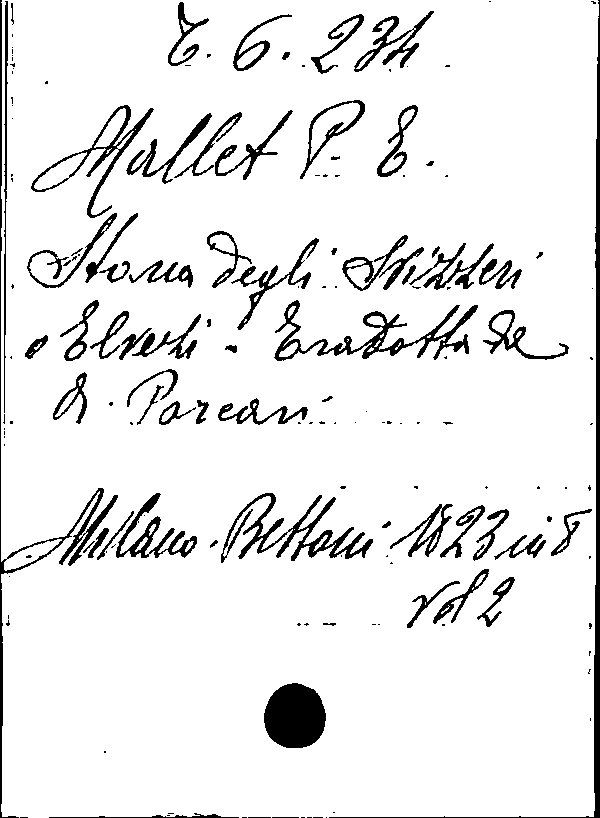 6. 234
Mallet P. E.
Storia degli Svizzeri
o Elvezi - Tradotta da
Porcari
Milano. Bettoni 1823 in 8
Vol 2